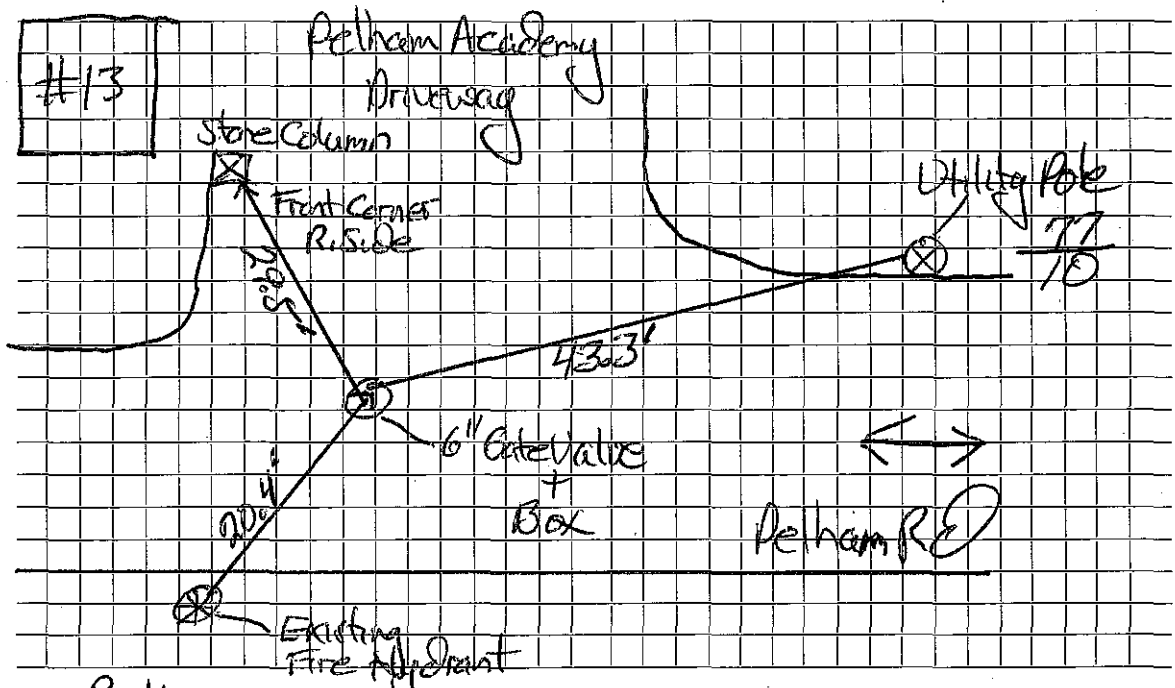 #13
Pelham Academy
Driveway
Stone Column
Front Corner
R. Side
Utility Pole
77
10
43.3'
6" Gate Valve
+
Box
20.4'
Pelham Rd
Existing
Fire Hydrant